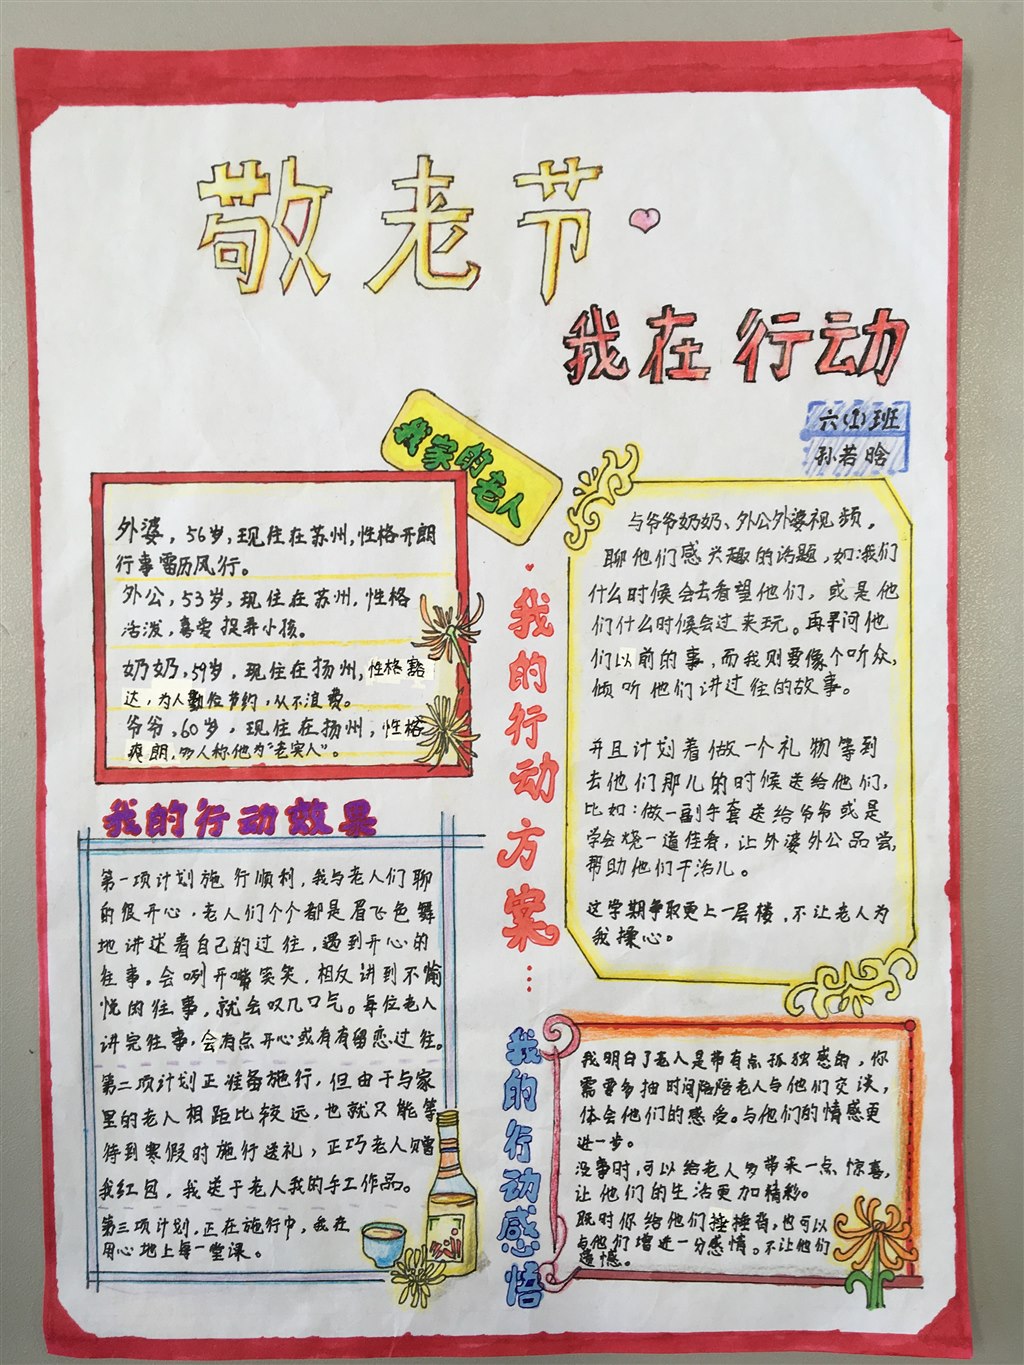 敬老节
我在行动
六(1)班
孙若晗
我家的老人
外婆，56岁，现住在苏州，性格开朗
行事雷厉风行。
外公，53岁，现住在苏州，性格
活泼，喜爱捉弄小孩。
奶奶，59岁，现住在扬州，性格豁
达，为人勤俭节约，从不浪费。
爷爷，60岁，现住在扬州，性格
爽朗，多人称他为“老实人”。
我的行动方案…
与爷爷奶奶、外公外婆视频。
聊他们感兴趣的话题，如：我们
什么时候会去看望他们，或是他
们什么时候会过来玩。再寻问他
们以前的事，而我则要像个听众，
倾听他们讲过往的故事。
并且计划着做一个礼物等到
去他们那儿的时候送给他们，
比如：做一副手套送给爷爷或是
学会烧一道佳肴，让外婆外公品尝，
帮助他们干活儿。
这学期争取更上一层楼，不让老人为
我操心。
我的行动效果
第一项计划施行顺利，我与老人们聊
的很开心，老人们个个都是眉飞色舞
地讲述着自己的过往，遇到开心的
往事，会咧开嘴笑笑，相反讲到不愉
悦的往事，就会叹几口气。每位老人
讲完往事，会有点开心或有有留恋过往。
第二项计划正准备施行，但由于与家
里的老人相距比较远，也就只能等
待到寒假时施行送礼，正巧老人赠
我红包，我送于老人我的手工作品。
第三项计划，正在施行中，我在
用心地上每一堂课。
我的行动感悟
我明白了老人是带有点孤独感的，你
需要多抽时间陪陪老人与他们交谈，
体会他们的感受。与他们的情感更
进一步。
没事时，可以给老人多带来一点惊喜，
让他们的生活更加精彩。
既时你给他们捶捶背，也可以
与他们增进一分感情。不让他们
遗憾。